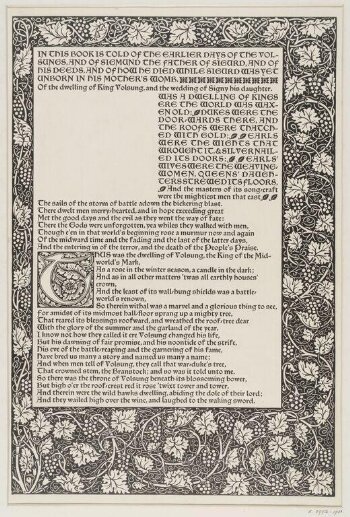 IN THIS BOOK IS TOLD OF THE EARLIER DAYS OF THE VOL-
SUNGS, AND OF SIGMUND THE FATHER OF SIGURD, AND OF
HIS DEEDS, AND OF HOW HE DIED WHILE SIGURD WAS YET
UNBORN IN HIS MOTHER'S WOMB.
Of the dwelling of King Volsung, and the wedding of Signy his daughter.
WAS A DWELLING OF KINGS
ERE THE WORLD WAS WAX-
EN OLD; DUKES WERE THE
DOOR-WARDS THERE, AND
THE ROOFS WERE THATCH-
ED WITH GOLD; EARLS
WERE THE WIGHTS THAT
WROUGHT IT, & SILVER NAIL-
ED ITS DOORS; EARLS'
WIVES WERE THE WEAVING-
WOMEN, QUEENS' DAUGH-
TERS STREWED ITS FLOORS,
And the masters of its song-craft
were the mightiest men that cast
The sails of the storm of battle adown the bickering blast.
There dwelt men merry-hearted, and in hope exceeding great
Met the good days and the evil as they went the way of fate:
There the Gods were unforgotten, yea whiles they walked with men,
Though e'en in that world's beginning rose a murmur now and again
Of the midward time and the fading and the last of the latter days,
And the entering in of the terror, and the death of the People's Praise.
THUS was the dwelling of Volsung, the King of the Mid-
world's Mark,
As a rose in the winter season, a candle in the dark;
And as in all other matters 'twas all earthly houses'
crown,
And the least of its wall-hung shields was a battle-
world's renown,
So therein withal was a marvel and a glorious thing to see,
For amidst of its midmost hall-floor sprang up a mighty tree,
That reared its blessings roofward, and wreathed the roof-tree dear
With the glory of the summer and the garland of the year.
I know not how they called it ere Volsung changed his life,
But his dawning of fair promise, and his noontide of the strife,
His eve of the battle-reaping and the garnering of his fame,
Have bred us many a story and named us many a name;
And when men tell of Volsung, they call that war-duke's tree,
That crowned stem, the Branstock; and so was it told unto me.
So there was the throne of Volsung beneath its blossoming bower,
But high o'er the roof-crest red it rose 'twixt tower and tower,
And therein were the wild hawks dwelling, abiding the dole of their lord;
And they wailed high over the wine, and laughed to the waking sword.